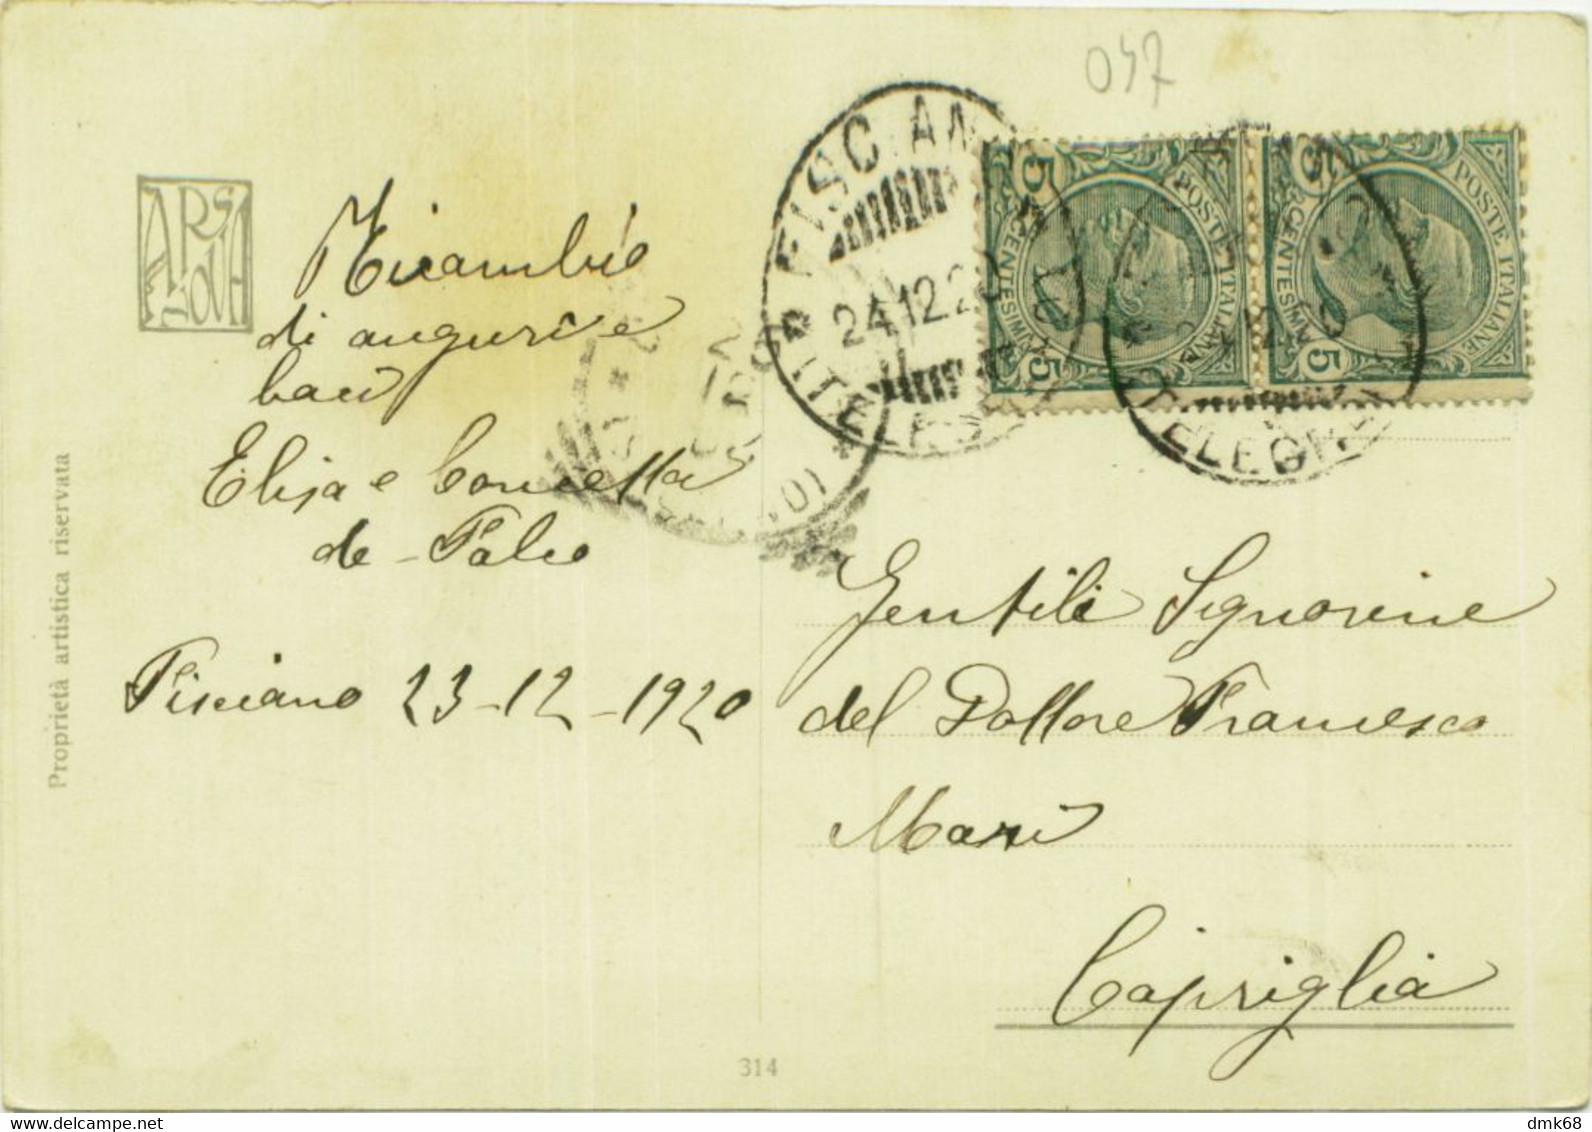 047
ARS NOVA
FISCIANO
24.12.20
POSTE ITALIANE
CENTESIMI 5
5
POSTE ITALIANE
CENTESIMI 5
5
TELEGR
Ricambio
di auguri e
baci
Elisa e Concetta
de Falco
Fisciano 23-12-1920
Gentili Signorine
del Dottore Francesco
Mari
Capriglia
Proprietà artistica riservata
314
dmk68